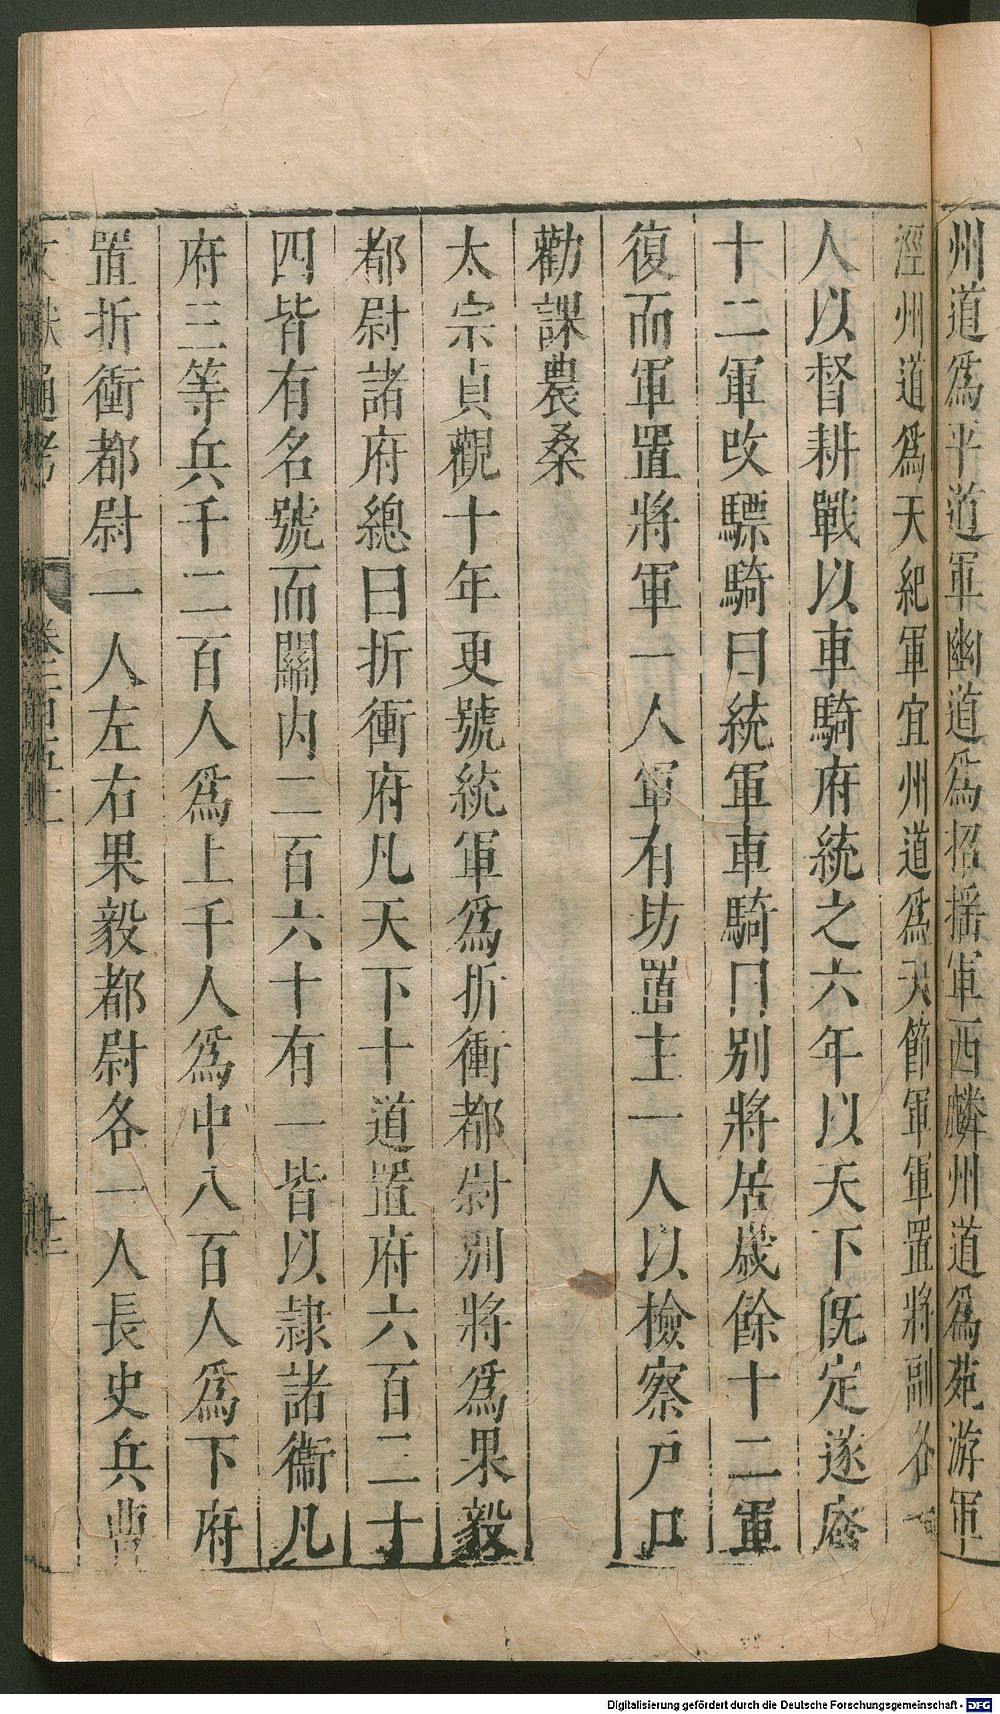 州道爲平道軍幽道爲招搖軍西麟州道爲苑游軍
涇州道爲天紀軍宜州道爲天節軍軍置將副各一
人以督耕戰以車騎府統之六年以天下旣定遂廢
十二軍改驃騎曰統軍車騎曰别將居歲餘十二軍
復而軍置將軍一人軍有坊置主一人以檢察戸口
勸課農桑
太宗貞觀十年更號統軍爲折衝都尉别將爲果毅
都尉諸府總曰折衝府凡天下十道置府六百三十
四皆有名號而關内二百六十有一皆以隷諸衞凡
府三等兵千二百人爲上千人爲中八百人爲下府
置折衝都尉一人左右果毅都尉各一人長史兵曹
文獻通考
Digitalisierung gefördert durch die Deutsche Forschungsgemeinschaft - DFG